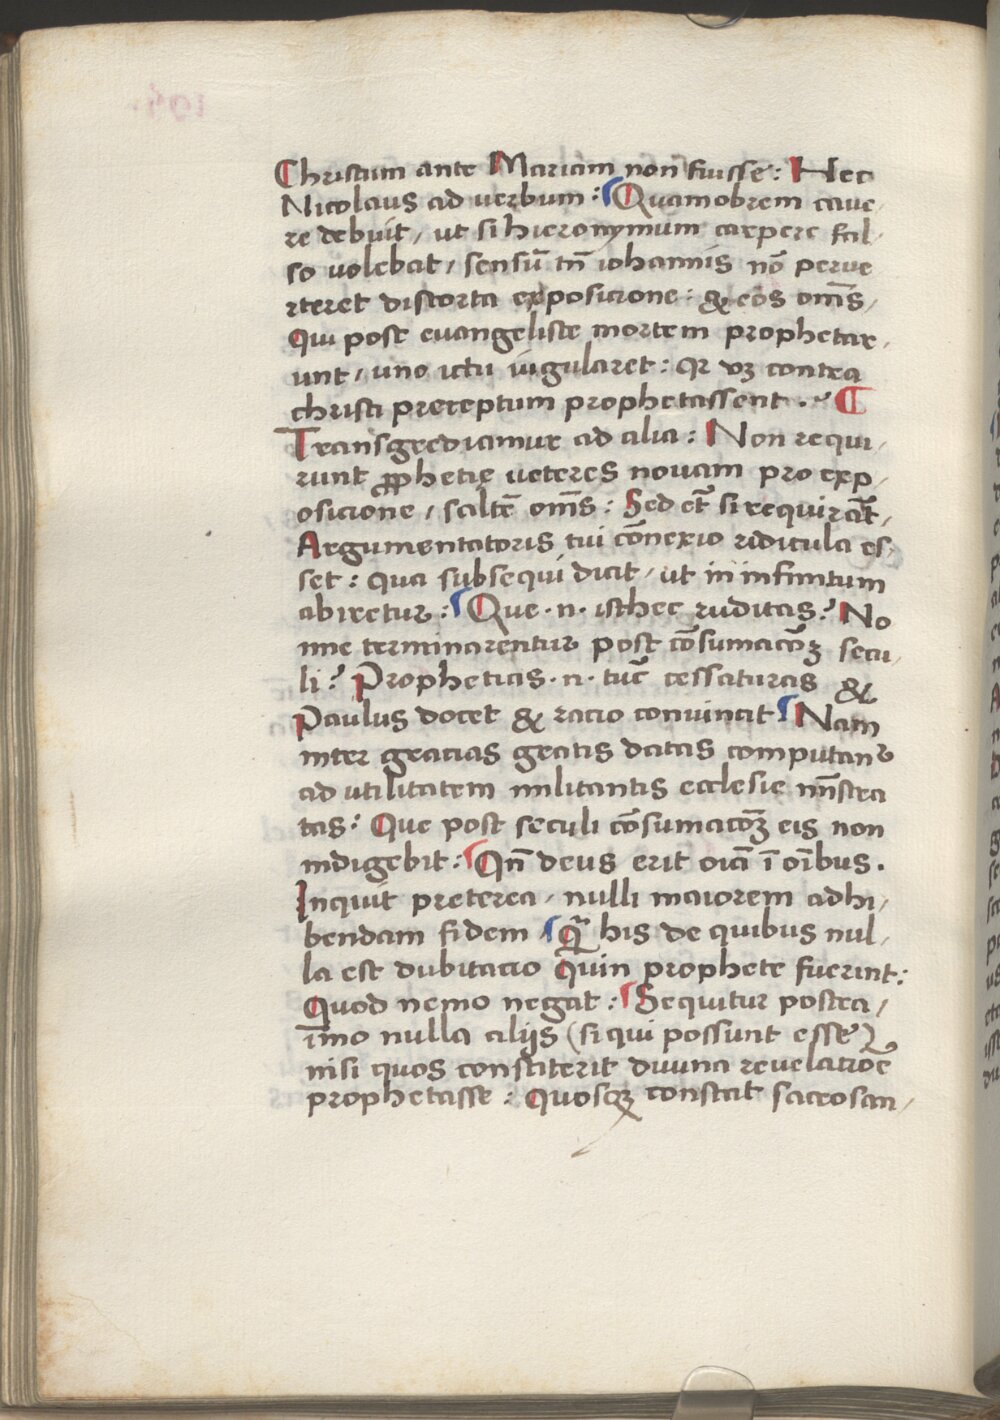 Christum ante Mariam non fuisse: Hec
Nicolaus ad verbum: Quamobrem cave,
re debuit, ut si hieronymum carpere fal,
so volebat, sensū tn̄ iohannis nō perve
rteret distorta exposicione: & eos om̄s,
Qui post evangeliste mortem prophetar,
unt, uno ictu iugularet: qr vꝫ contra
christi preceptum prophetassent. ¶
Transgrediamur ad alia: Non requi,
runt ꝓphetie veteres novam pro exp,
osicione, saltē om̄s: Sed et̄ si requirāt,
Argumentatoris tui cōnexio ridicula es,
set: qua subsequi dicit, ut in infinitum
abiretur: Que .n. isthec ruditas? No
nne terminarentur post cōsumacōꝫ secu,
li? Prophetias .n. tūc cessaturas &
Paulus docet & racio convincit Nam
inter gracias gratis datas computanr
ad utilitatem militantis ecclesie mn̄stra
tas: Que post seculi cōsumacōꝫ eis non
indigebit: Qn̄ deus erit oīa ī oībus.
Inquit preterea, nulli maiorem adhi,
bendam fidem, Qᷓ his de quibus nul,
la est dubitacio Quin prophete fuerint:
Quod nemo negat: Sequitur postea,
īmo nulla alijs (si qui possunt esse)
nisi quos constiterit divina revelacōe
prophetasse: Quosqꝫ constat sacrosan,